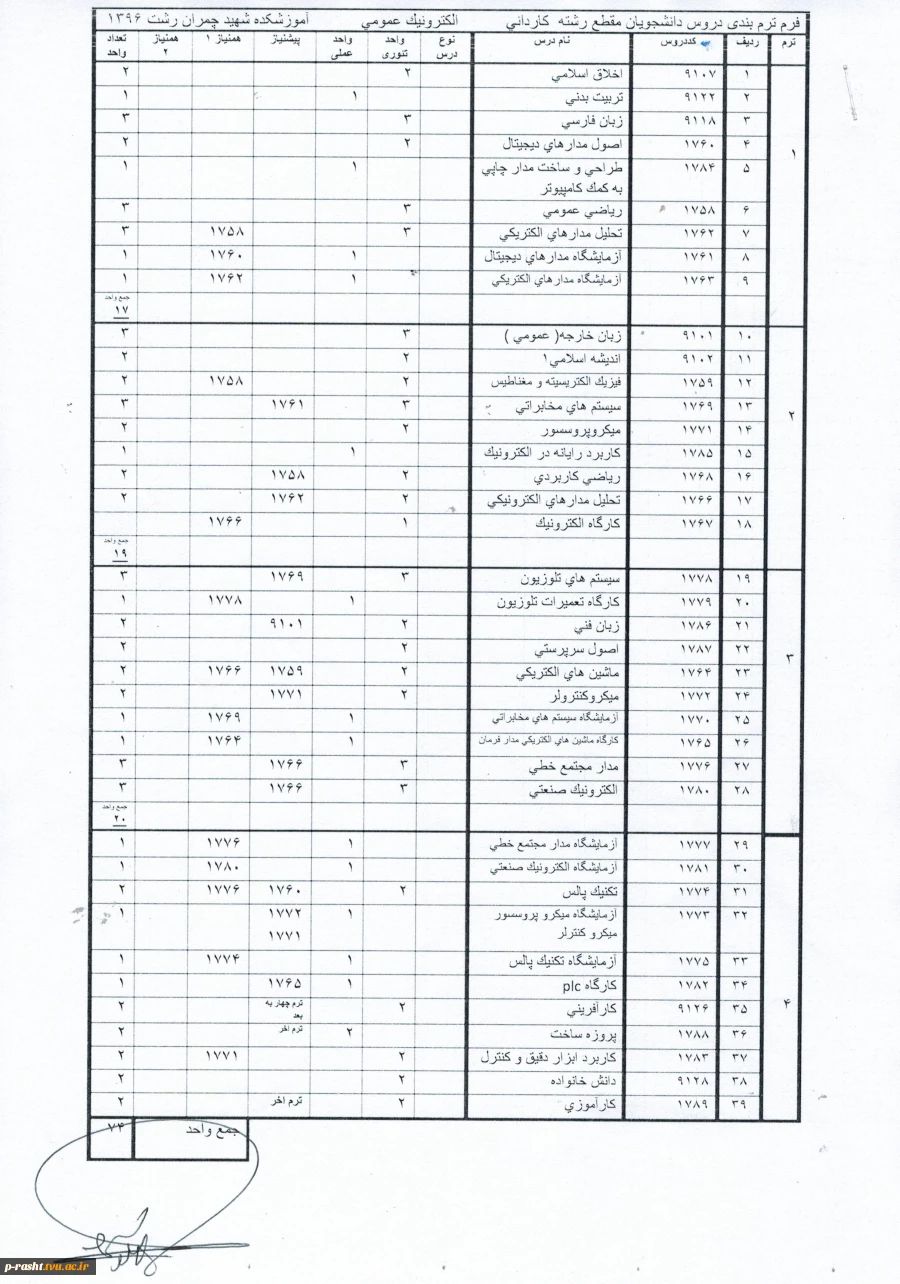 فرم ترم بندی دروس دانشجویان مقطع رشته کارداني الکترونيك عمومي آموزشکده شهید چمران رشت ۱۳۹۶
ترم ردیف کددروس نام درس نوع درس واحد تئوری واحد عملی پیشنیاز همنیاز ۱ همنیاز ۲ تعداد واحد
۱
۱ ۹۱۰۷ اخلاق اسلامي ۲ ۲
۲ ۹۱۲۲ تربیت بدني ۱ ۱
۳ ۹۱۱۸ زبان فارسي ۳ ۳
۴ ۱۷۶۰ اصول مدارهاي دیجیتال ۲ ۲
۵ ۱۷۸۴ طراحي و ساخت مدار چاپي ۱ ۱
به کمك کامپیوتر
۶ ۱۷۵۸ ریاضي عمومي ۳ ۳
۷ ۱۷۶۲ تحلیل مدارهاي الکتریکي ۳ ۱۷۵۸ ۳
۸ ۱۷۶۱ آزمایشگاه مدارهاي دیجیتال ۱ ۱۷۶۰ ۱
۹ ۱۷۶۳ آزمایشگاه مدارهاي الکتریکي ۱ ۱۷۶۲ ۱
جمع واحد
۱۷
۲
۱۰ ۹۱۰۱ زبان خارجه( عمومي ) ۳ ۳
۱۱ ۹۱۰۲ اندیشه اسلامي۱ ۲ ۲
۱۲ ۱۷۵۹ فیزیك الکتریسیته و مغناطیس ۲ ۱۷۵۸ ۲
۱۳ ۱۷۶۹ سیستم هاي مخابراتي ۳ ۱۷۶۱ ۳
۱۴ ۱۷۷۱ میکروپروسسور ۲ ۲
۱۵ ۱۷۸۵ کاربرد رایانه در الکترونیك ۱ ۱
۱۶ ۱۷۶۸ ریاضي کاربردي ۲ ۱۷۵۸ ۲
۱۷ ۱۷۶۶ تحلیل مدارهاي الکترونیکي ۲ ۱۷۶۲ ۲
۱۸ ۱۷۶۷ کارگاه الکترونیك ۱ ۱۷۶۶
جمع واحد
۱۹
۳
۱۹ ۱۷۷۸ سیستم هاي تلوزیون ۳ ۱۷۶۹ ۳
۲۰ ۱۷۷۹ کارگاه تعمیرات تلوزیون ۱ ۱۷۷۸ ۱
۲۱ ۱۷۸۶ زبان فني ۲ ۹۱۰۱ ۲
۲۲ ۱۷۸۷ اصول سرپرستي ۲ ۲
۲۳ ۱۷۶۴ ماشین هاي الکتریکي ۲ ۱۷۵۹ ۱۷۶۶ ۲
۲۴ ۱۷۷۲ میکروکنترولر ۲ ۱۷۷۱ ۲
۲۵ ۱۷۷۰ آزمایشگاه سیستم هاي مخابراتي ۱ ۱۷۶۹ ۱
۲۶ ۱۷۶۵ کارگاه ماشین هاي الکتریکي مدار فرمان ۱ ۱۷۶۴ ۱
۲۷ ۱۷۷۶ مدار مجتمع خطي ۳ ۱۷۶۶ ۳
۲۸ ۱۷۸۰ الکترونیك صنعتي ۳ ۱۷۶۶ ۳
جمع واحد
۲۰
۴
۲۹ ۱۷۷۷ آزمایشگاه مدار مجتمع خطي ۱ ۱۷۷۶ ۱
۳۰ ۱۷۸۱ آزمایشگاه الکترونیك صنعتي ۱ ۱۷۸۰ ۱
۳۱ ۱۷۷۴ تکنیك پالس ۲ ۱۷۶۰ ۱۷۷۶ ۲
۳۲ ۱۷۷۳ آزمایشگاه میکرو پروسسور ۱ ۱۷۷۲ ۱
میکرو کنترلر ۱۷۷۱
۳۳ ۱۷۷۵ آزمایشگاه تکنیك پالس ۱ ۱۷۷۴ ۱
۳۴ ۱۷۸۲ کارگاه plc ۱ ۱۷۶۵ ۱
۳۵ ۹۱۲۶ کارآفریني ۲ ترم چهار به بعد ۲
۳۶ ۱۷۸۸ پروژه ساخت ۲ ترم اخر ۲
۳۷ ۱۷۸۳ کاربرد ابزار دقیق و کنترل ۲ ۱۷۷۱ ۲
۳۸ ۹۱۲۸ دانش خانواده ۲ ۲
۳۹ ۱۷۸۹ کارآموزي ۲ ترم اخر ۲
جمع واحد ۷۴
p-rasht.tvu.ac.ir